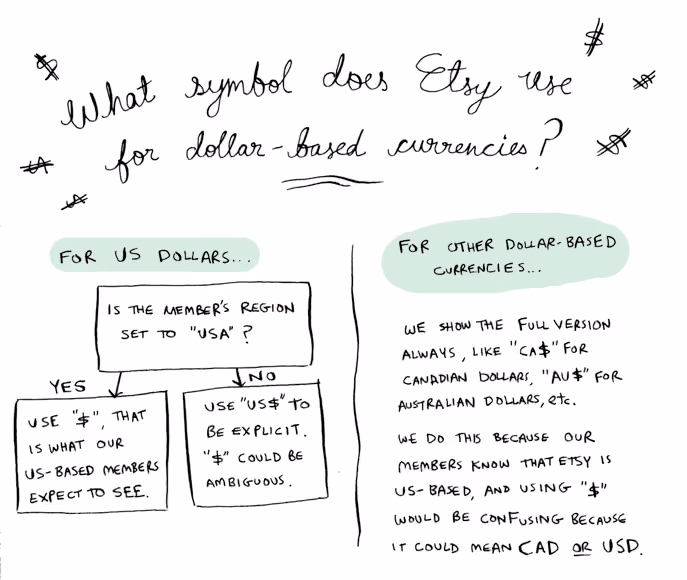 What symbol does Etsy use
for dollar-based currencies?
$
$
$
$
$
$
FOR US DOLLARS...
IS THE MEMBER'S REGION
SET TO "USA"?
YES
NO
USE "$", THAT
IS WHAT OUR
US-BASED MEMBERS
EXPECT TO SEE.
USE "US$" TO
BE EXPLICIT.
"$" COULD BE
AMBIGUOUS.
FOR OTHER DOLLAR-BASED
CURRENCIES...
WE SHOW THE FULL VERSION
ALWAYS, LIKE "CA$" FOR
CANADIAN DOLLARS, "AU$" FOR
AUSTRALIAN DOLLARS, etc.
WE DO THIS BECAUSE OUR
MEMBERS KNOW THAT ETSY IS
US-BASED, AND USING "$"
WOULD BE CONFUSING BECAUSE
IT COULD MEAN CAD OR USD.